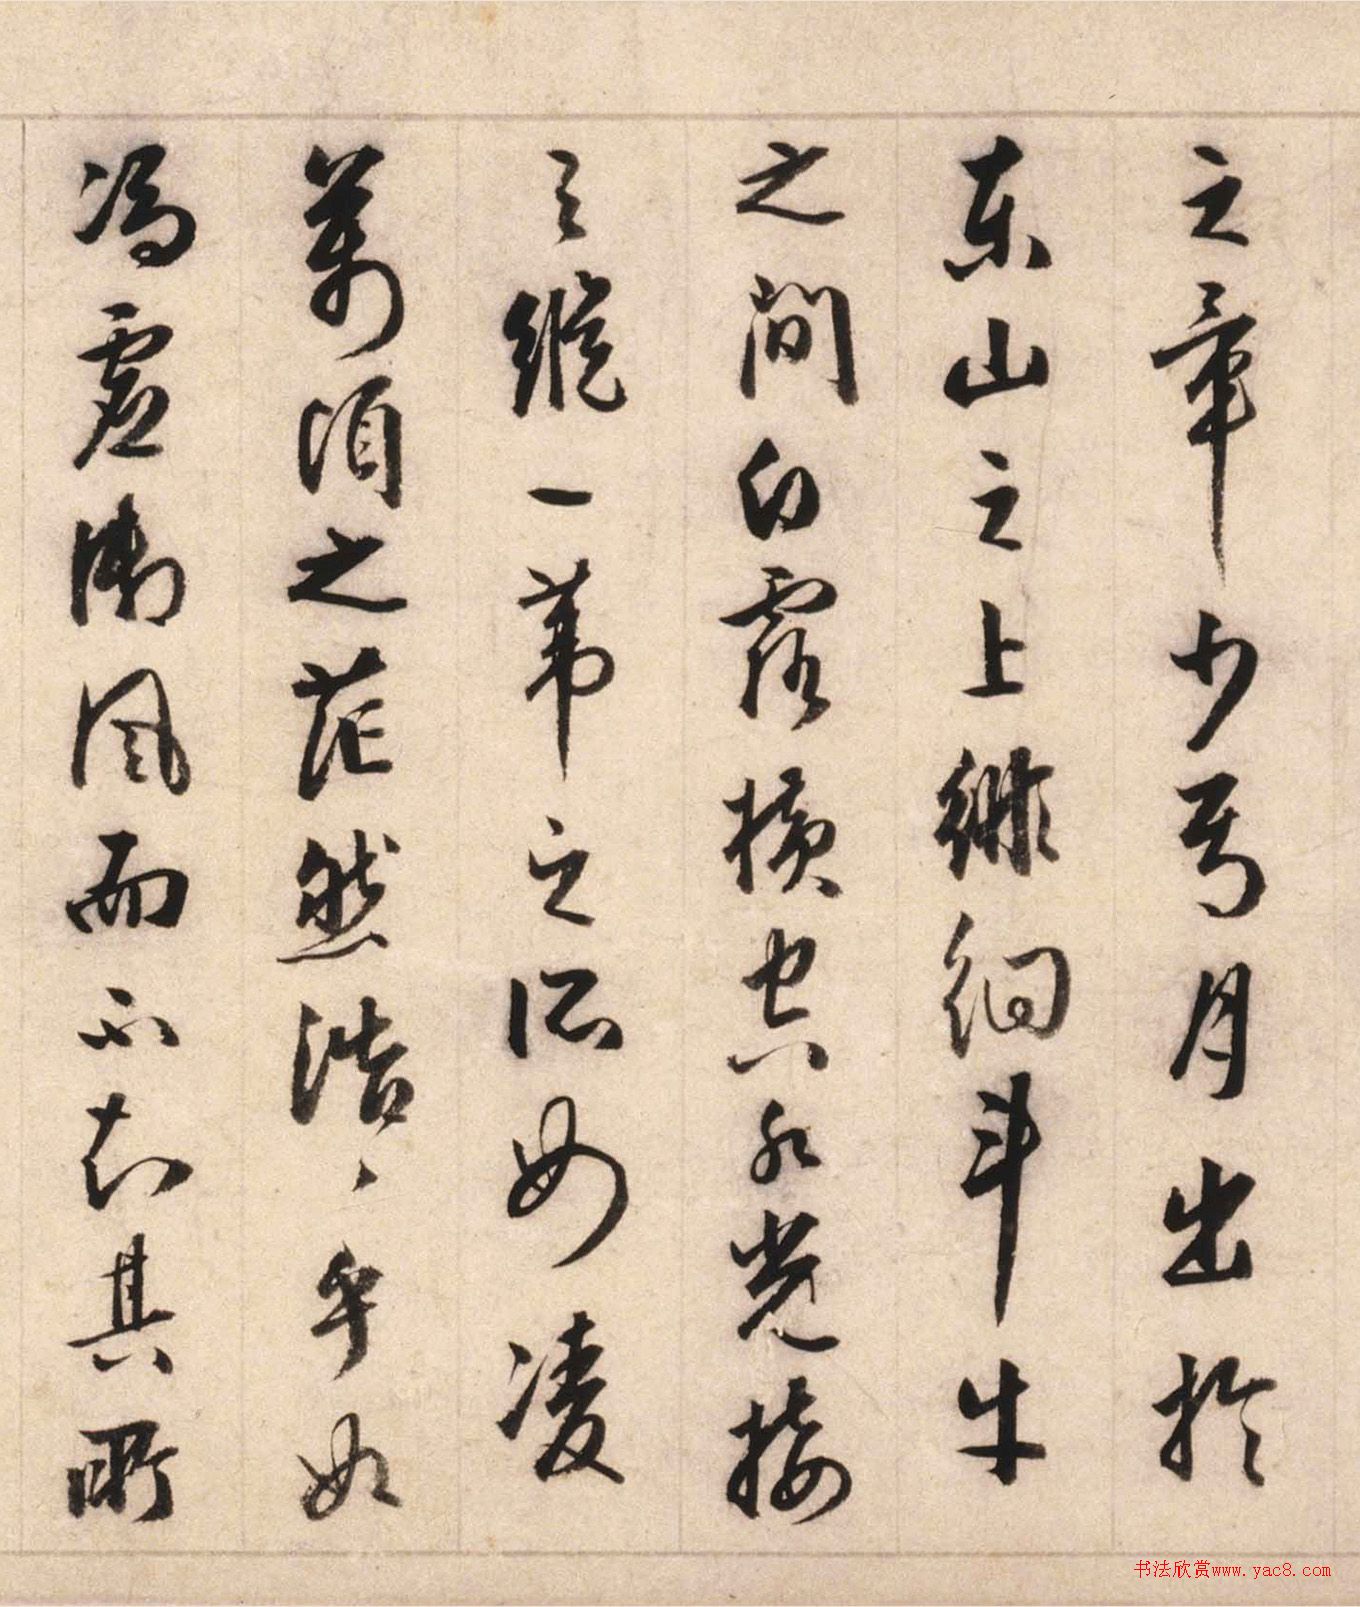 之章少焉月出於
東山之上徘徊斗牛
之間白露橫空水光接
天縱一葦之所如凌
萬頃之茫然浩〻乎如
馮虛御風而不知其所
书法欣赏www.yac8.com